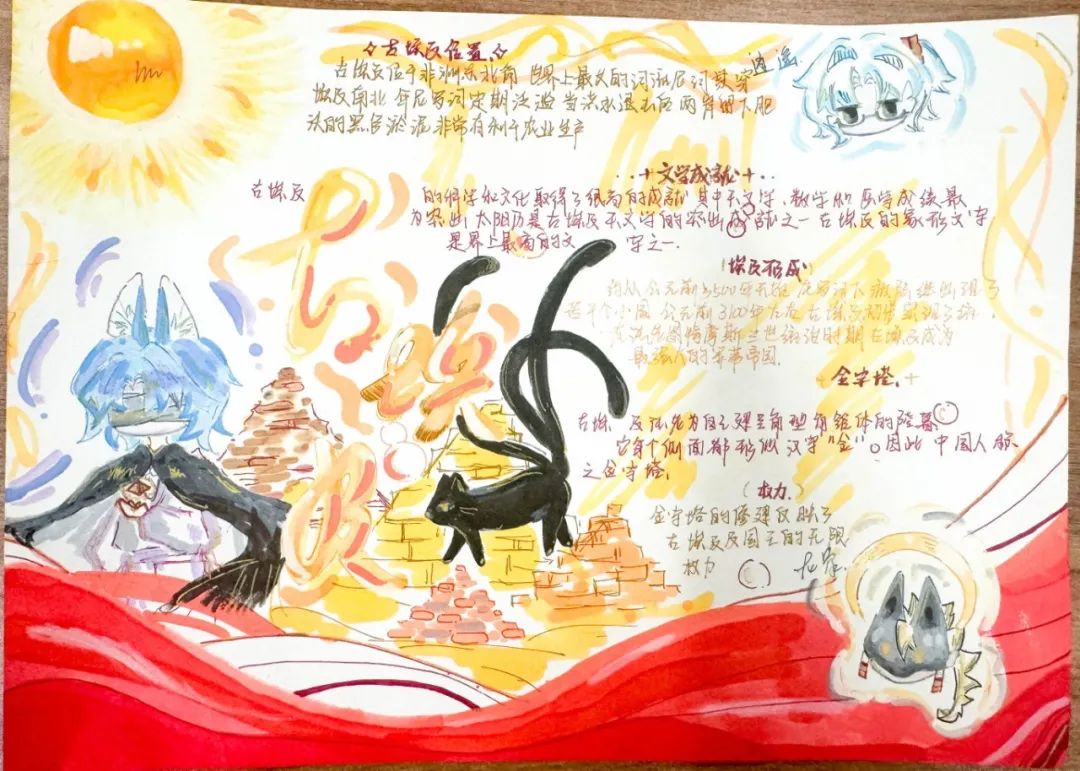 古埃及位置
古埃及位于非洲东北角 世界上最大的河流尼罗河贯穿
埃及南北 每年尼罗河定期泛滥 当洪水退去后 两岸留下肥
沃的黑色淤泥 非常有利于农业生产
逍遥
文学成就
古埃及 的科学和文化取得了很高的成就 其中天文学、数学和医学成绩最
为突出 太阳历是古埃及天文学的突出成就之一 古埃及的象形文字
是界上最高的文 字之一.
古埃及
埃及形成
约从公元前3500年开始 尼罗河下游陆续出现了
若干个小国 公元前3100年左右 古埃及初步实现了统一
在法老图特摩斯三世统治时期 古埃及成为
最强大的军事帝国.
金字塔.
古埃 及法老为自己建三角型有锥体的陵墓
它每个侧面都形似汉字"金"。因此 中国人称
之金字塔.
(权力.)
金字塔的修建反映了
古埃及及国王的无限
权力